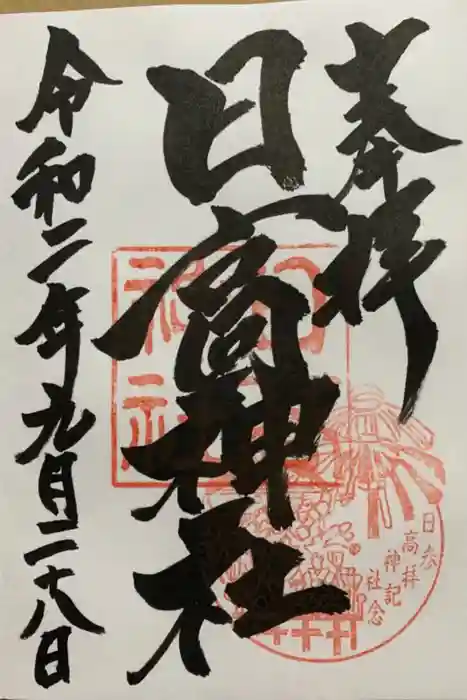 奉拝
日高神社
令和二年九月二十八日
参拝記念
日高神社